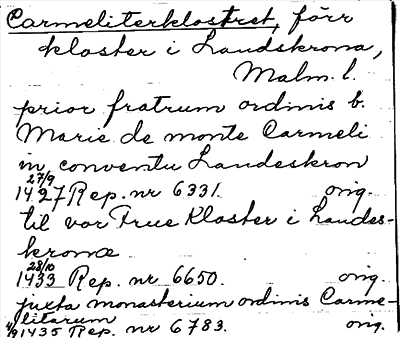 Carmeliterklostret, förr
kloster i Landskrona,
Malm. l.
prior fratrum ordinis b.
Marie de monte Carmeli
in conventu Landeskron
27/9
1427 Rep. nr 6331. orig.
til vor Frue Kloster i Landes-
kronæ
28/10
1433 Rep. nr 6650. orig.
juxta monasterium ordinis Carme-
litarum
1435 Rep. nr 6783. orig.